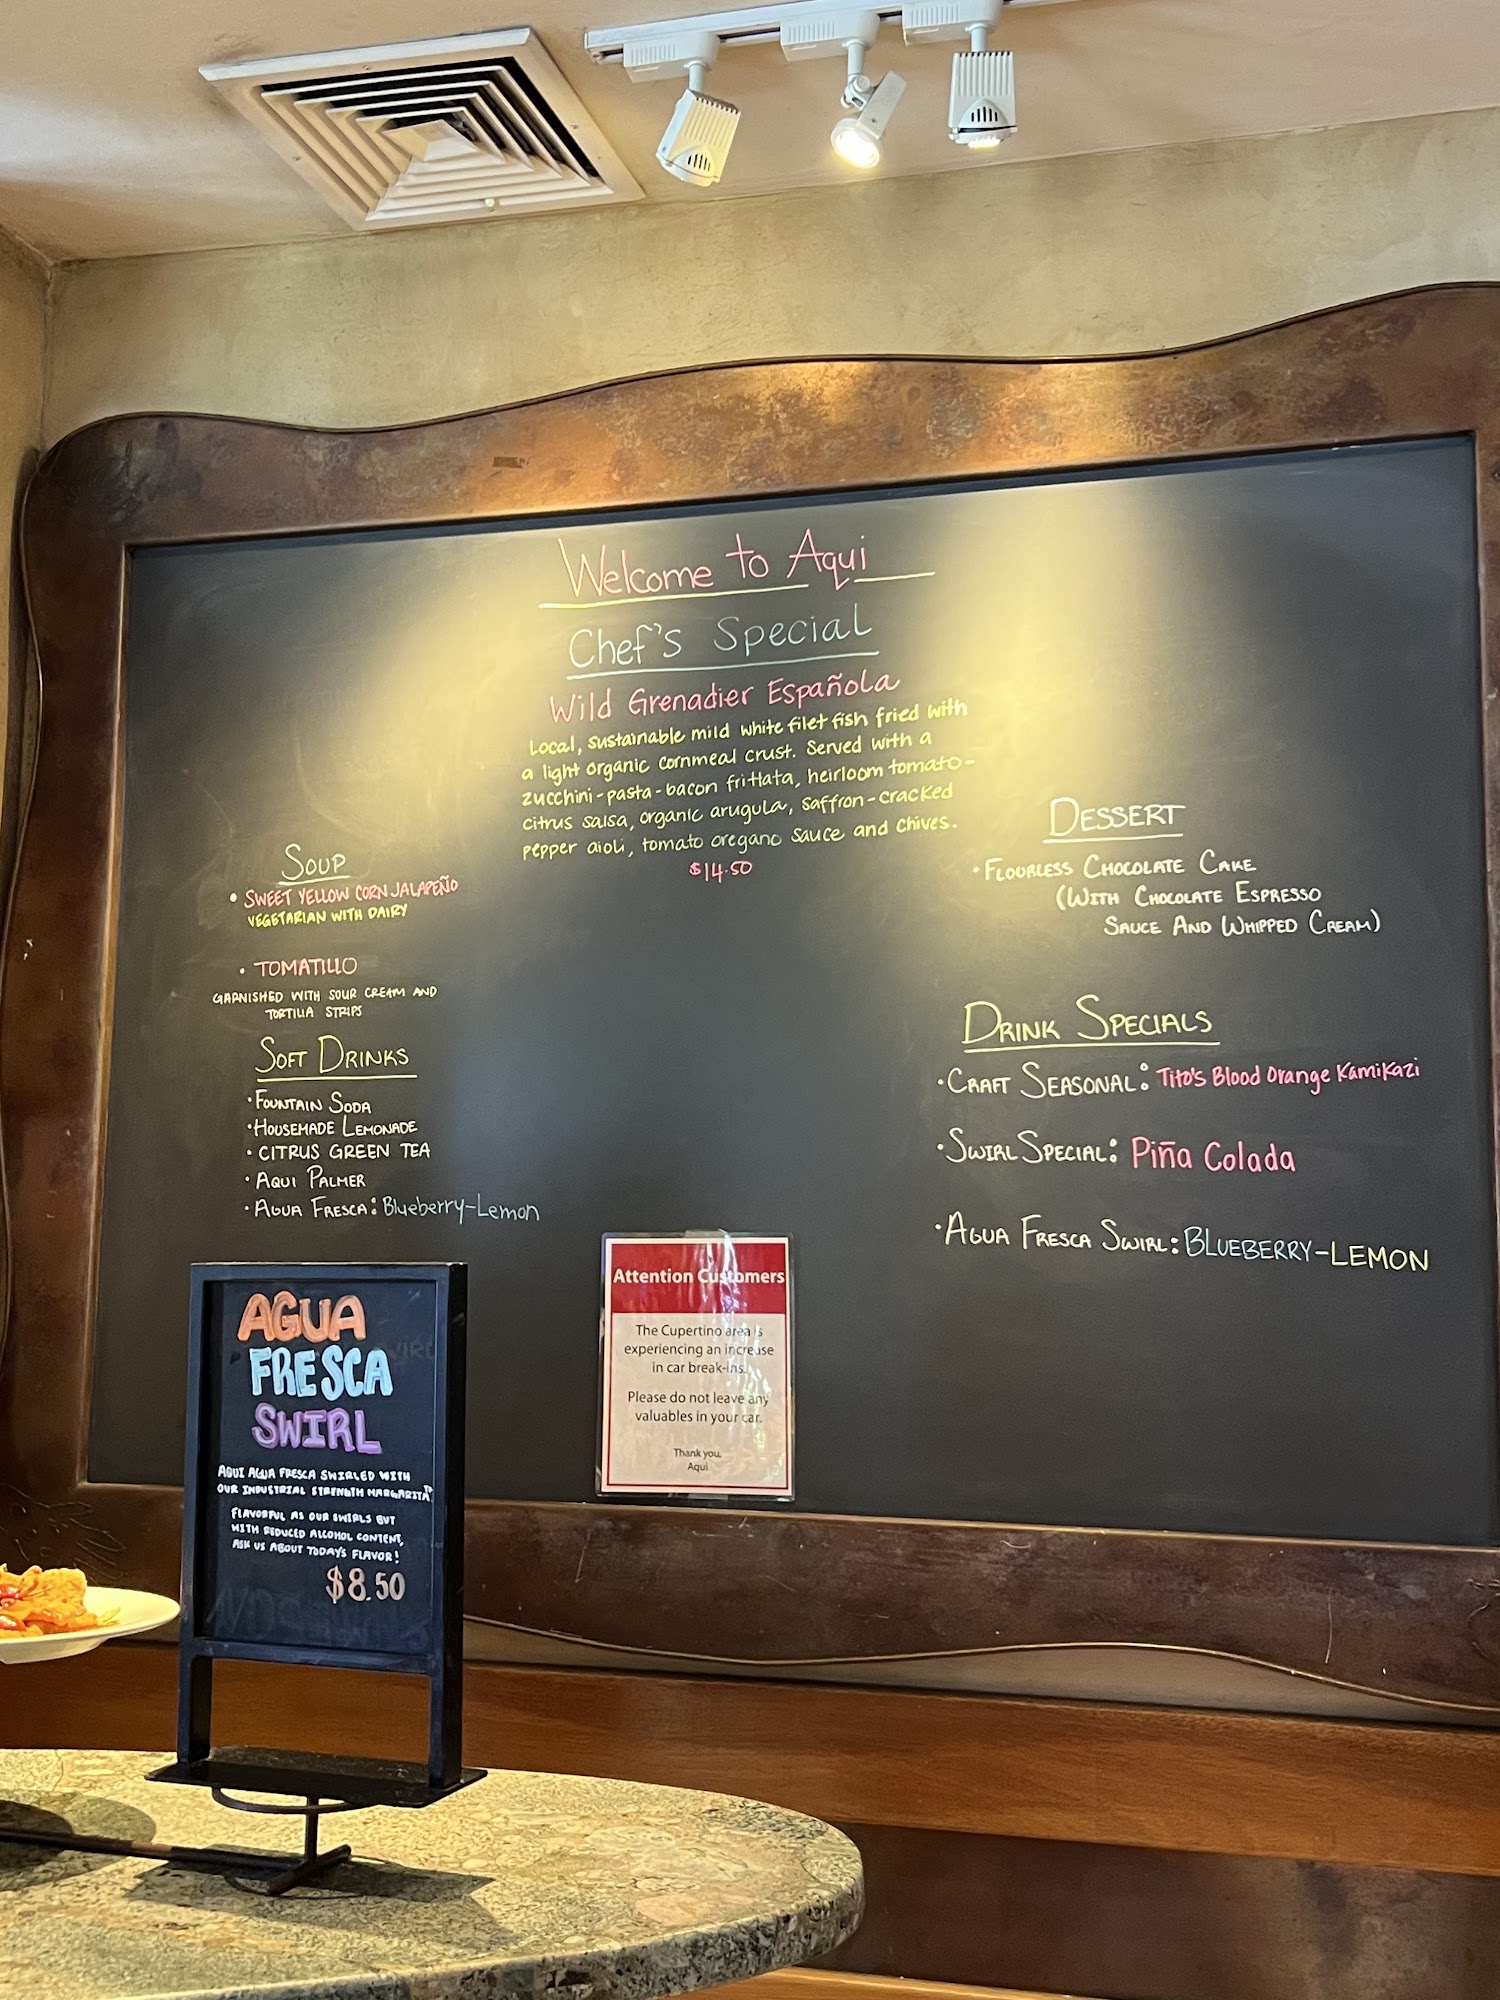 Welcome to Aqui
Chef's Special
Wild Grenadier Española
Local, sustainable mild white filet fish fried with
a light organic cornmeal crust. Served with a
zucchini-pasta-bacon frittata, heirloom tomato-
citrus salsa, organic arugula, saffron-cracked
pepper aioli, tomato oregano sauce and chives.
$14.50
SOUP
• SWEET YELLOW CORN JALAPEÑO
VEGETARIAN WITH DAIRY
• TOMATILLO
GARNISHED WITH SOUR CREAM AND
TORTILLA STRIPS
SOFT DRINKS
• FOUNTAIN SODA
• HOUSEMADE LEMONADE
• CITRUS GREEN TEA
• AQUI PALMER
• AGUA FRESCA: Blueberry-Lemon
DESSERT
• FLOURLESS CHOCOLATE CAKE
(WITH CHOCOLATE ESPRESSO
SAUCE AND WHIPPED CREAM)
DRINK SPECIALS
• CRAFT SEASONAL: Tito's Blood Orange Kamikazi
• SWIRL SPECIAL: Piña Colada
• AGUA FRESCA SWIRL: BLUEBERRY-LEMON
Attention Customers
The Cupertino area is
experiencing an increase
in car break-ins.
Please do not leave any
valuables in your car.
Thank you,
Aqui
AGUA
FRESCA
SWIRL
AQUI AGUA FRESCA SWIRLED WITH
OUR INDUSTRIAL STRENGTH MARGARITA
FLAVORFUL AS OUR SWIRLS BUT
WITH REDUCED ALCOHOL CONTENT,
ASK US ABOUT TODAY'S FLAVOR!
$8.50